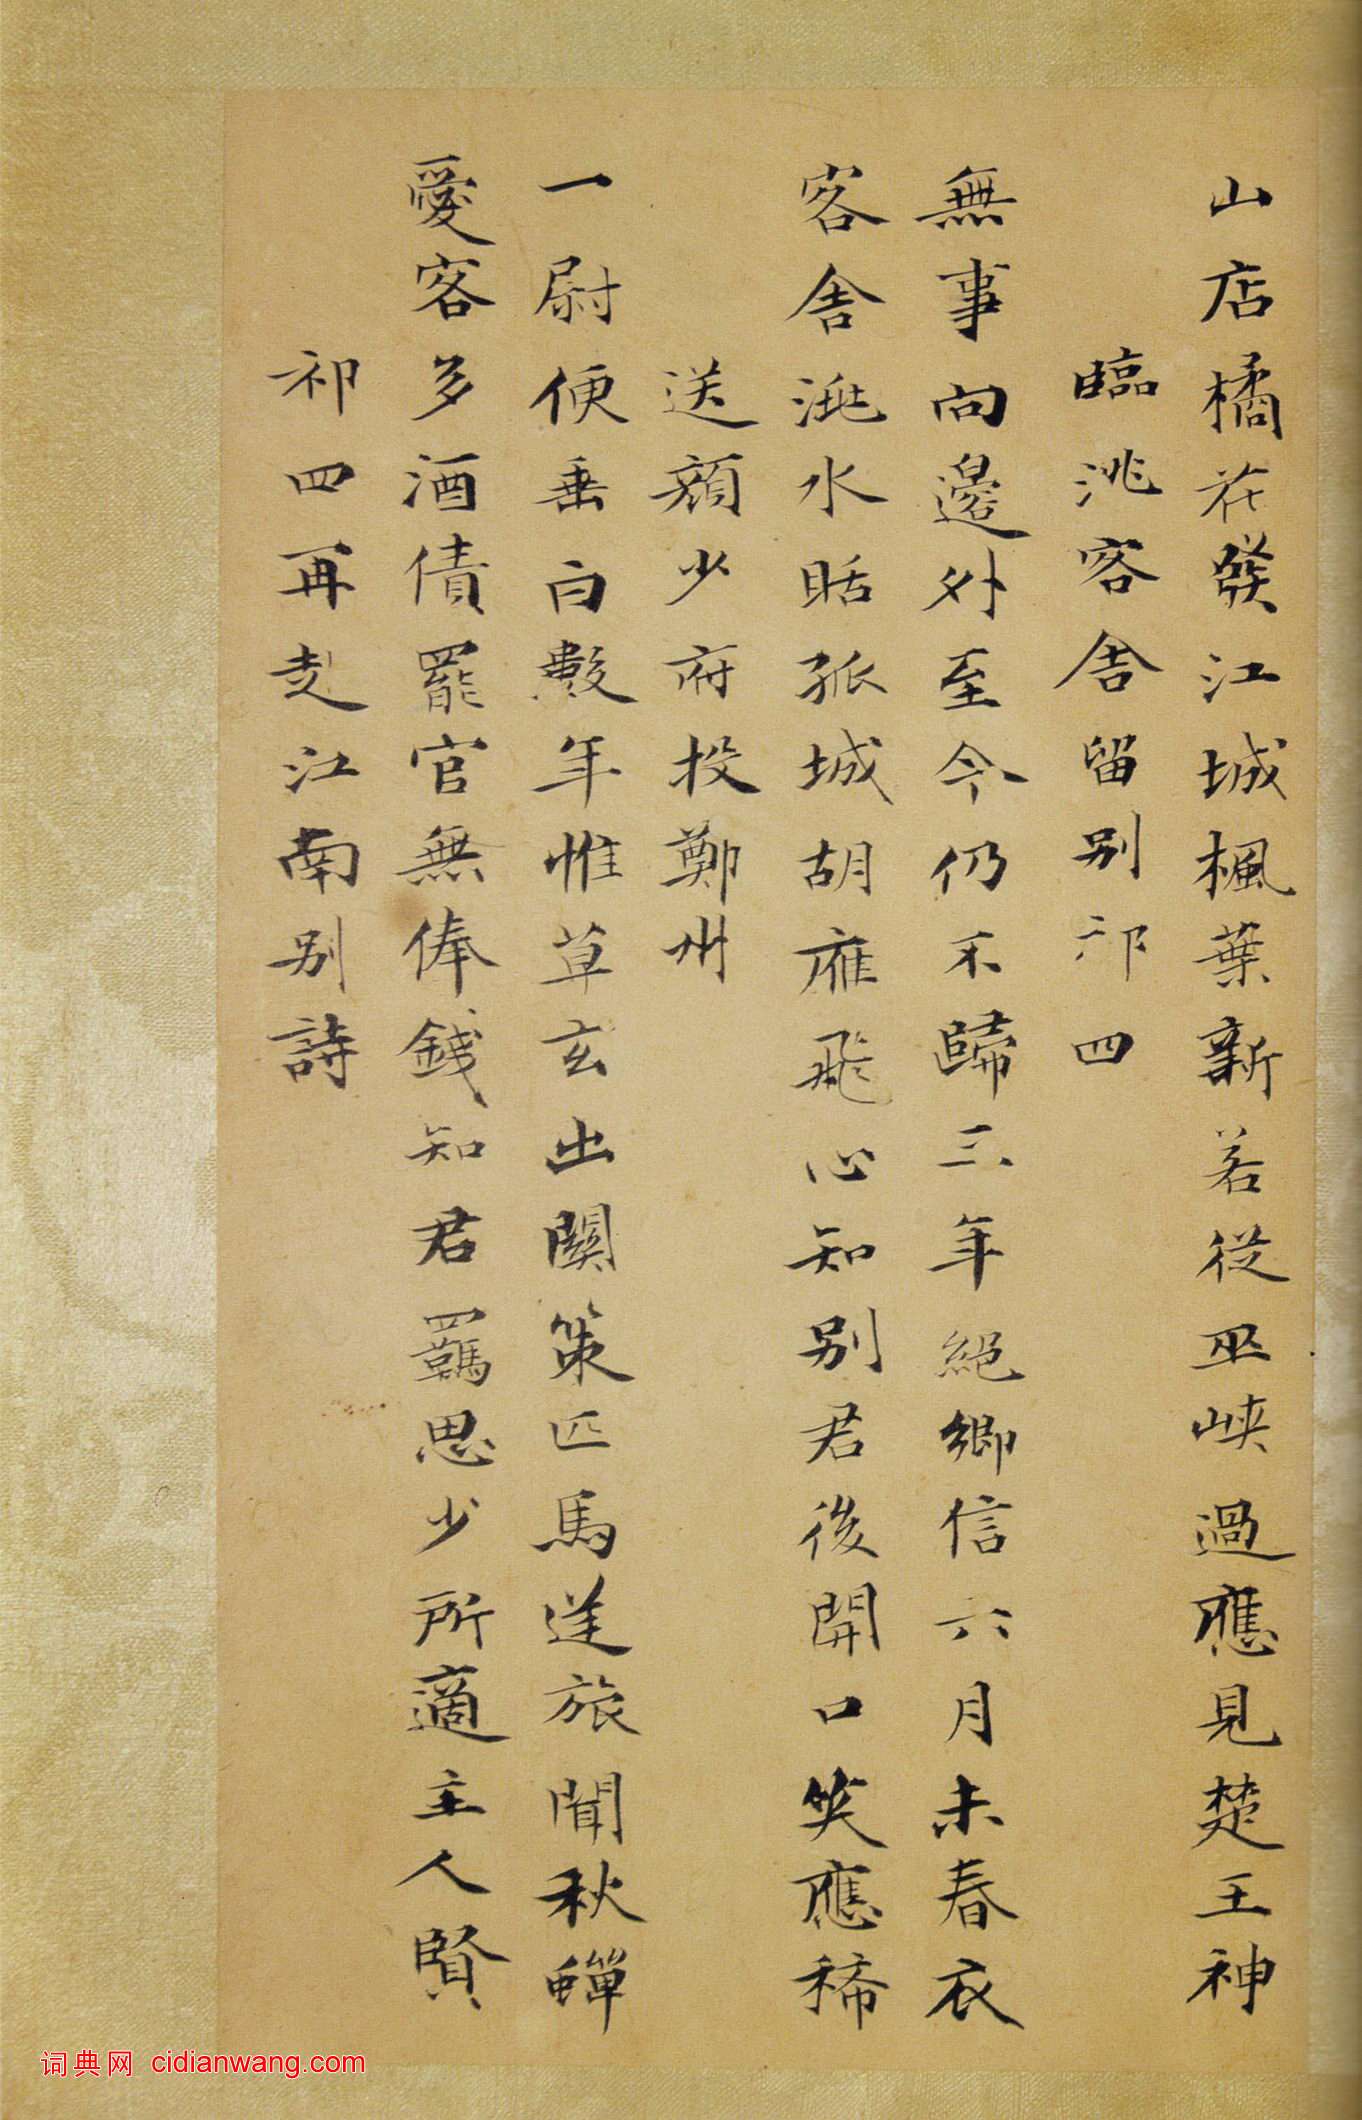 山店橘花發江城楓葉新若從巫峽過應見楚王神
臨洮客舍留別祁四
無事向邊外至今仍不歸三年絕鄉信六月未春衣
客舍洮水聒孤城胡雁飛心知別君後開口笑應稀
送顏少府投鄭州
一尉便垂白數年惟草玄出關策匹馬逆旅聞秋蟬
愛客多酒債罷官無俸錢知君羈思少所適主人賢
祁四再赴江南別詩
词典网 cidianwang.com